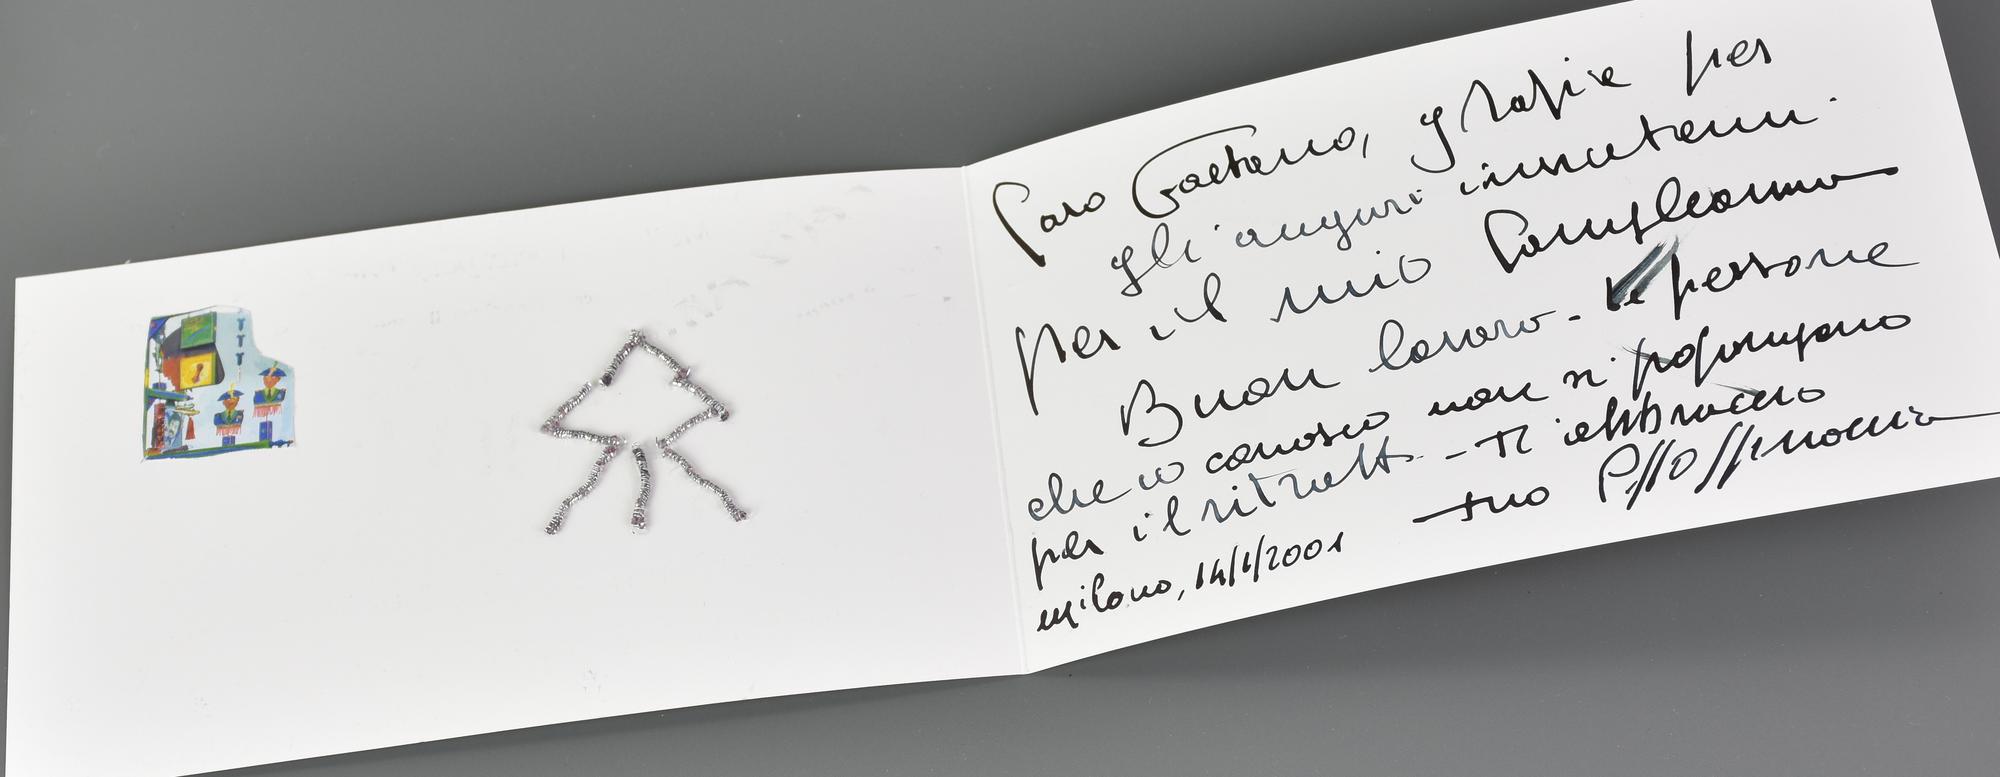 Caro Gaetano, grazie per
gli auguri
per il mio Compleanno
Buon lavoro - le persone
che io conosco non si propongono
per il ritratto - Ti abbraccio
tuo
Milano, 14/1/2001